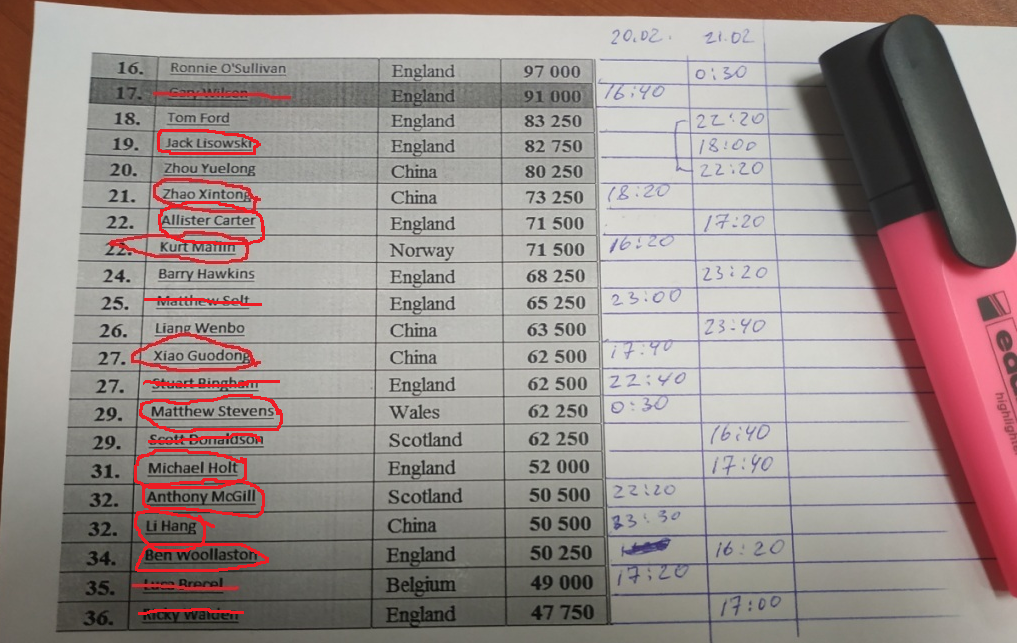 20.02. 21.02
16. Ronnie O'Sullivan England 97 000 0:30
17. Gary Wilson England 91 000 16:40
18. Tom Ford England 83 250 22:20
19. Jack Lisowski England 82 750 18:00
20. Zhou Yuelong China 80 250 22:20
21. Zhao Xintong China 73 250 18:20
22. Allister Carter England 71 500 17:20
22. Kurt Maflin Norway 71 500 16:20
24. Barry Hawkins England 68 250 23:20
25. Matthew Selt England 65 250 23:00
26. Liang Wenbo China 63 500 23:40
27. Xiao Guodong China 62 500 17:40
27. Stuart Bingham England 62 500 22:40
29. Matthew Stevens Wales 62 250 0:30
29. Scott Donaldson Scotland 62 250 16:40
31. Michael Holt England 52 000 17:40
32. Anthony McGill Scotland 50 500 22:20
32. Li Hang China 50 500 23:30
34. Ben Woollaston England 50 250 16:20
35. Luca Brecel Belgium 49 000 17:20
36. Ricky Walden England 47 750 17:00
highlighter